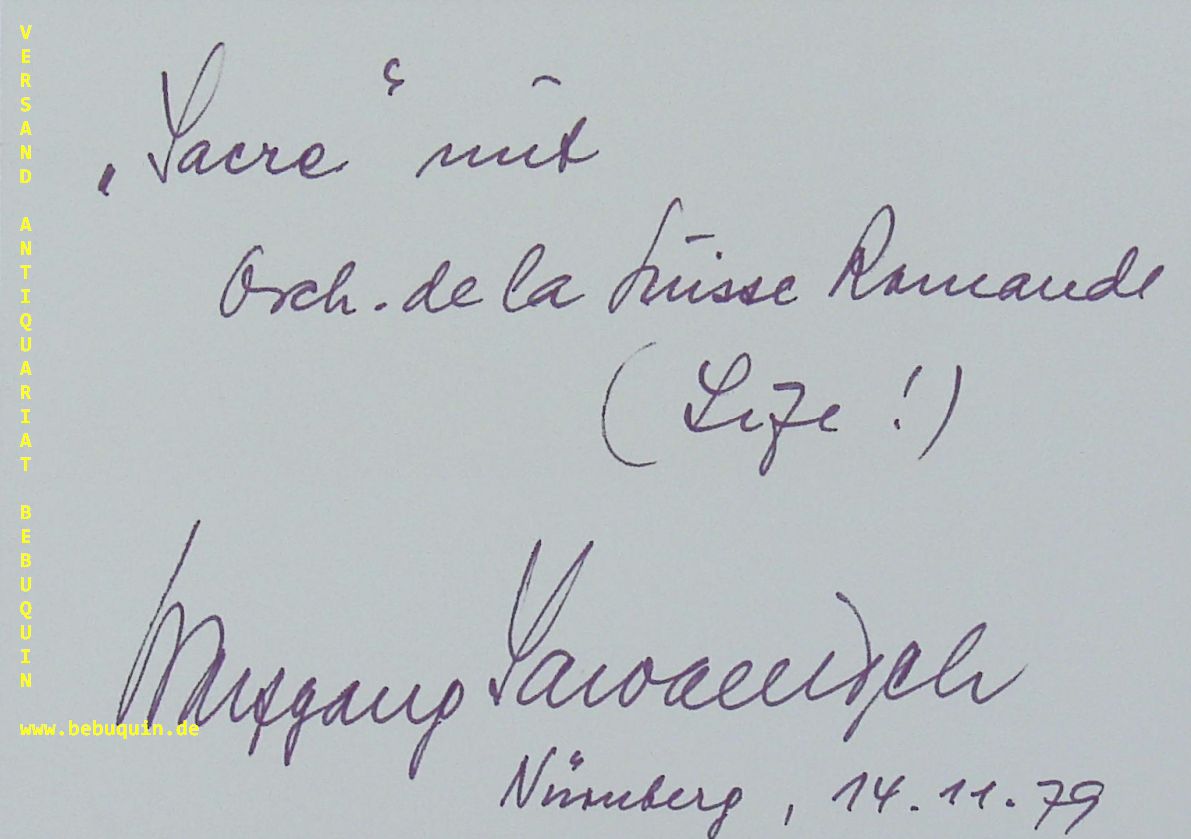 VERSAND ANTIQUARIAT BEBUQUIN
www.bebuquin.de
„Sacre“ mit
Orch. de la Suisse Romande
(Life!)
Wolfgang Sawallisch
Nürnberg, 14.11.79